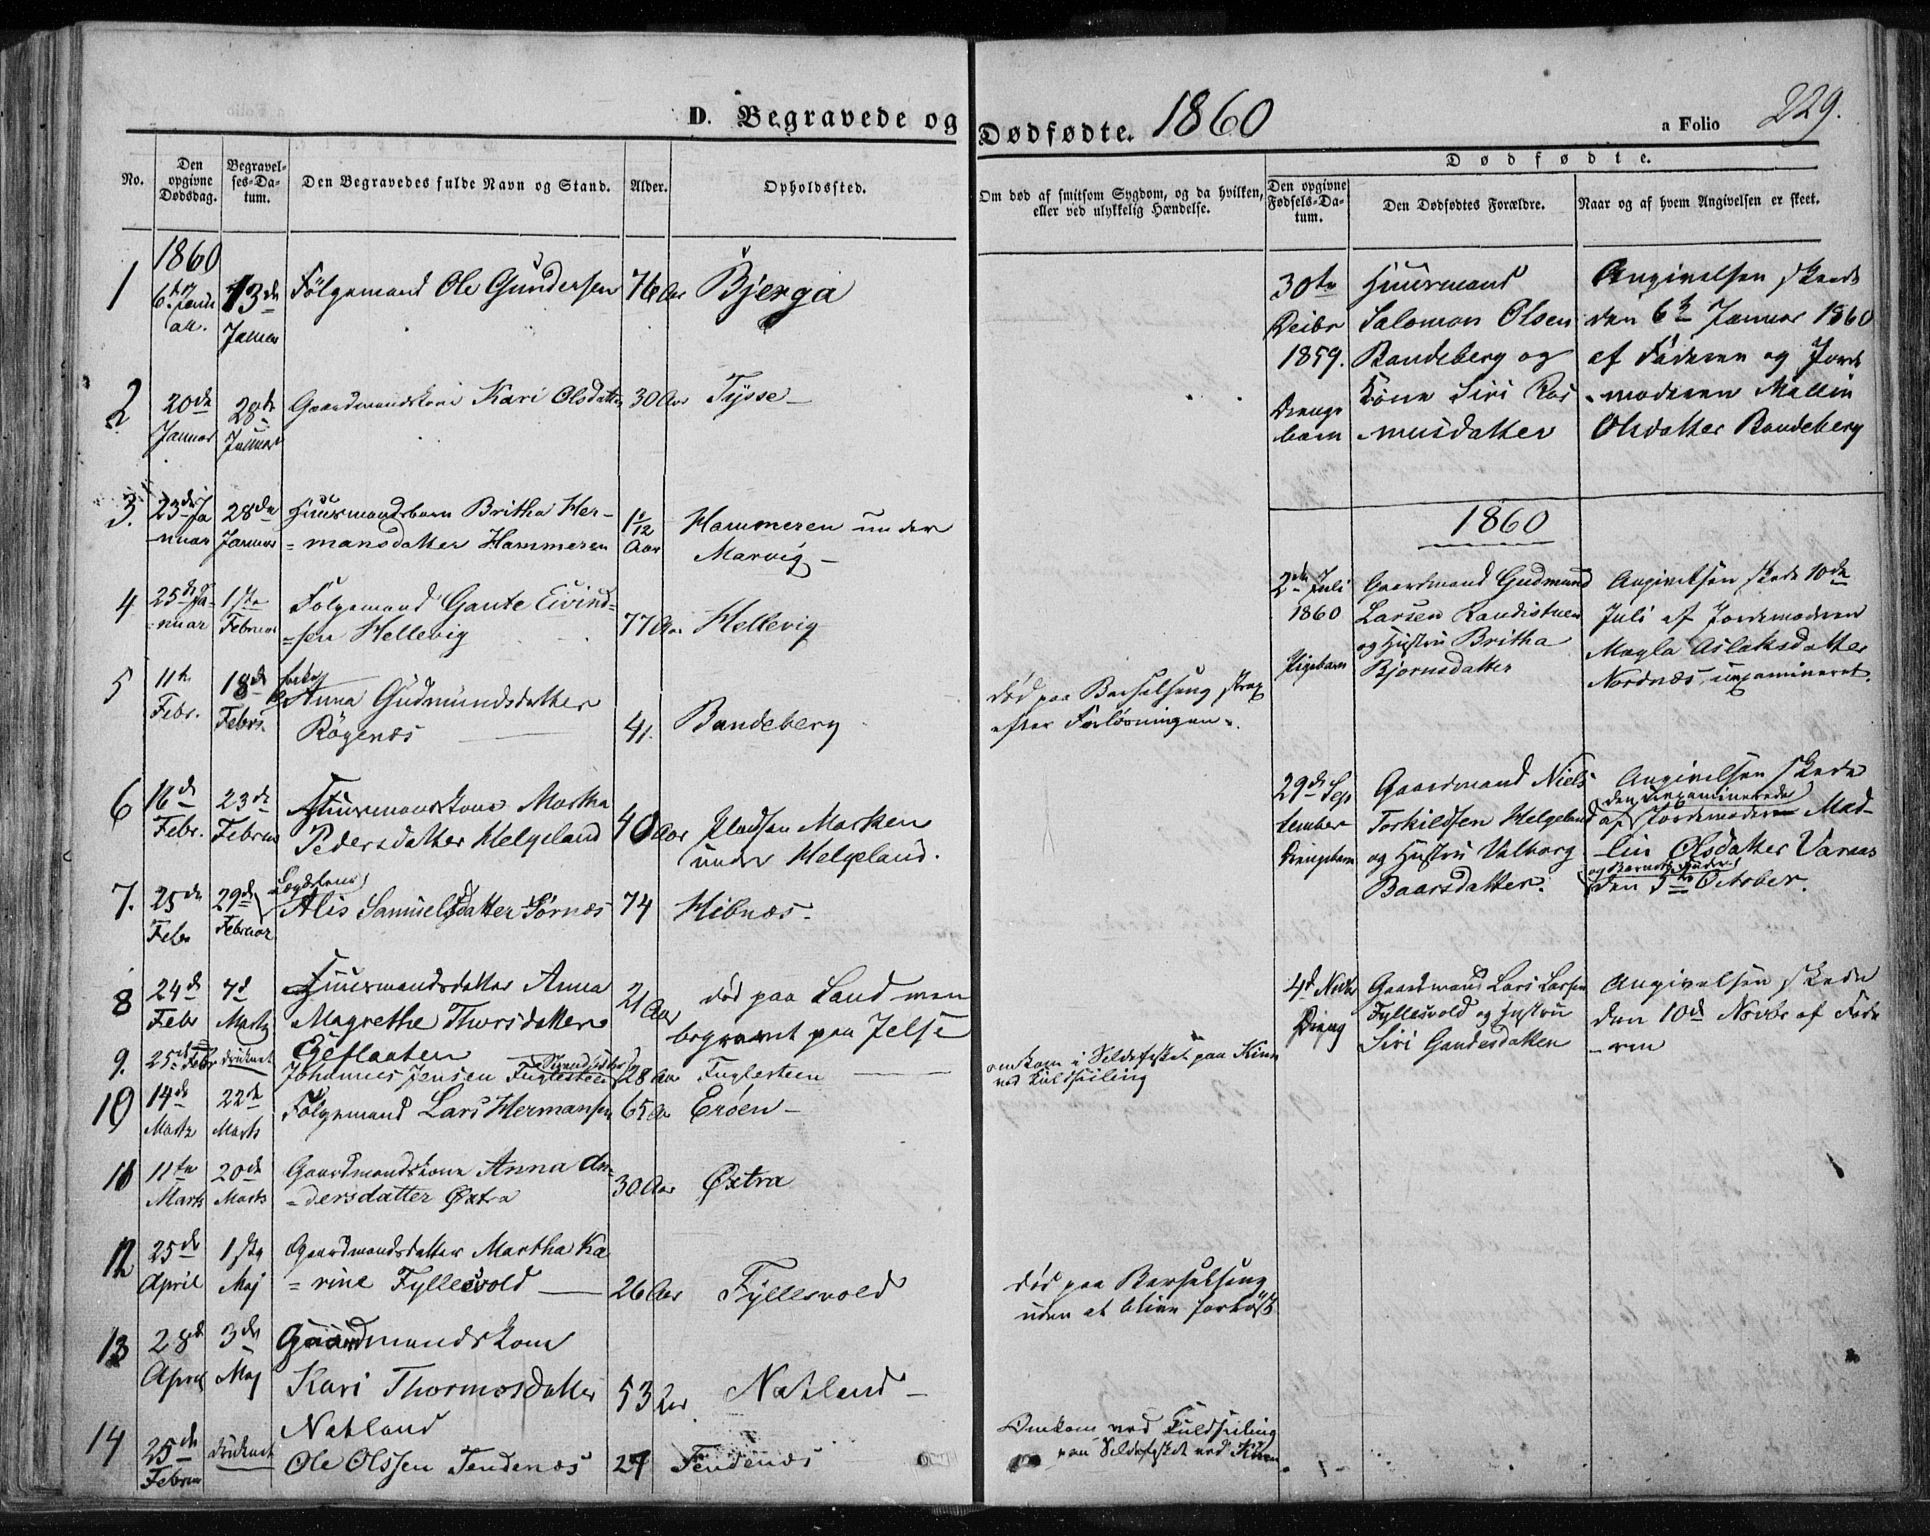 D. Begravede og Dødfødte. 1860
a Folio 229.
No.
Den opgivne Dødsdag.
Begravelses-Datum.
Den Begravedes fulde Navn og Stand.
Alder.
Opholdssted.
Om død af smitsom Sygdom, og da hvilken, eller ved ulykkelig Hændelse.
Dødfødte.
Den opgivne Fødsels-Datum.
Den Dødfødtes Forældre.
Naar og af hvem Angivelsen er skeet.
1860
1 6te Janu ar. 13de Januar Følgemand Ole Gundersen 76 Aar Bjerga
2 20de Januar 28de Januar Gaardmandskone Kari Olsdatter 30 Aar Tysse
3. 23de Ja nuar 28de Januar Huusmandsbarn Britha Her-
mansdatter Hammeren 1 1/12 Aar Hammeren under
Marvig
4 25de Ja nuar 1ste Februar Følgemand Gaute Eivind-
sen Hellevig 77 Aar Hellevig
5 11te Febr. 18de Febr. Anna Gudmundsdatter
Røgenæs 41. Bandeberg
død paa Barselseng strax
efter Forløsningen.
6 16de Febr. 23de Februar Huusmandskone Martha
Pedersdatter Helgeland 40 Aar Pladsen Marken
under Helgeland.
7. 25de Febr 29de Februar Lægdslem
Alis Samuelsdatter Sørnæs 74 Hibnæs.
8 24de Febr 7d Marts Huusmandsdatter Anna
Magrethe Thorsdatter 21 Aar død paa Land men
begravet paa Jelse
9. 25de Febr druknet Johannes Jensen Fuglesteen 28 Aar Fuglesteen
omkom i Sildefisket paa Kinn
ved Kuldseiling
10 14de Marts 22de Marts Følgemand Lars Hermansen 65 Aar Erøen
11 11te Marts 20de Marts Gaardmandskone Anna An-
dersdatter Øxtra 30 Aar Øxtra
12 25de April 1ste Maj Gaardmandsdatter Martha Ka-
rine Fyllesvold 26 Aar Fyllesvold
død paa Barselseng
uden at blive forløst
13 28de April 3de Maj Gaardmandskone
Kari Thormosdatter 53 Aar Natland
Natland
14 25de Februar druknet Ole Olssen Tendenæs 27 Tendenæs
Omkom ved Kuldseiling
paa Sildefisket ved Kinn
30te Decbr 1859. Drenge barn
Huusmand
Salomon Olsen
Bandeberg og
Kone Siri Ras
musdatter
Angivelsen skede
den 6te Januar 1860
af Faderen og Jorde
moderen Mallin
Olsdatter Bandeberg
1860
2den Juli 1860 Pigebarn
Gaardmand Gudmund
Larsen Randistuen
og Hustru Britha
Bjørnsdatter
Angivelsen skede 10de
Juli af Jordemoderen
Magla Aslaksdatter
Nordnæs, uexamineret.
29de Sep tember Drengebarn
Gaardmand Niels
Torkildsen Helgeland
og Hustru Valborg
Baarsdatter.
Angivelsen skede
af den uexaminerede
Jordemoder Mad-
lin Olsdatter Varaas
og Barnets Fader
den 5te October.
4d Novbr Dreng
Gaardmand Lars Larsen
Fyllesvold og Hustru
Siri Gautesdatter
Angivelsen skede
den 10de Novbr af Fade
ren